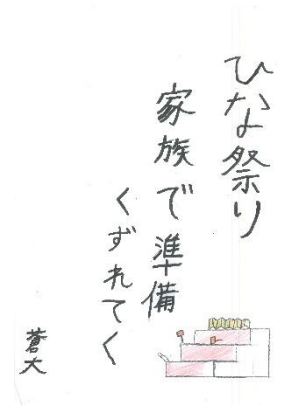 ひなよ祭り
家族で準備
くずれてく
蒼大